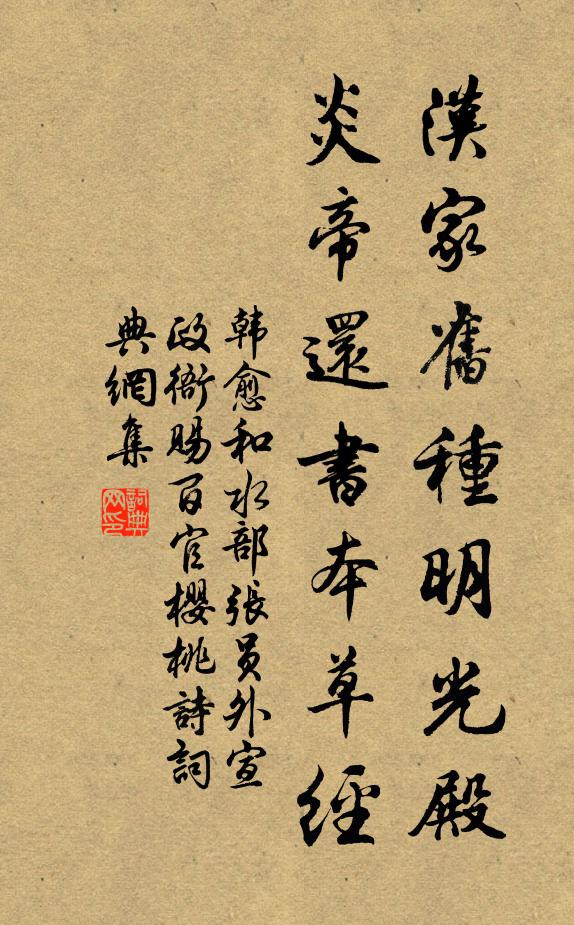 漢家舊種明光殿
炎帝還書本草經
韩愈和水部張員外宣
政衙賜百官櫻桃詩詞
典網集
詞典
网印